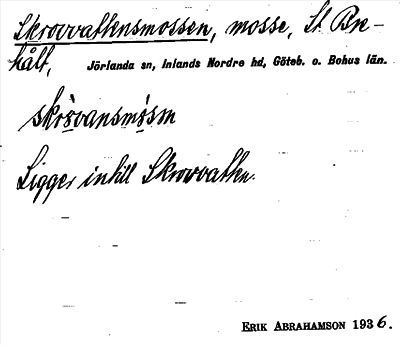 Skrovvattensmossen, mosse, St. Bre-
hålt, Jörlanda sn, Inlands Nordre hd, Göteb. o. Bohus län.
skròvansmòsm
Ligger intill Skrovvatten.
ERIK ABRAHAMSON 1936.